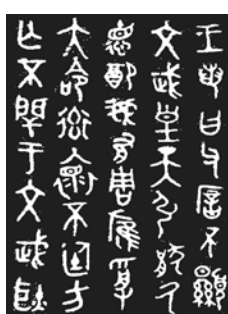 王若曰父不顯
文武皇天引猒氒
德配我有周雁受
大命率褱不廷方
亡不閈于文武耿